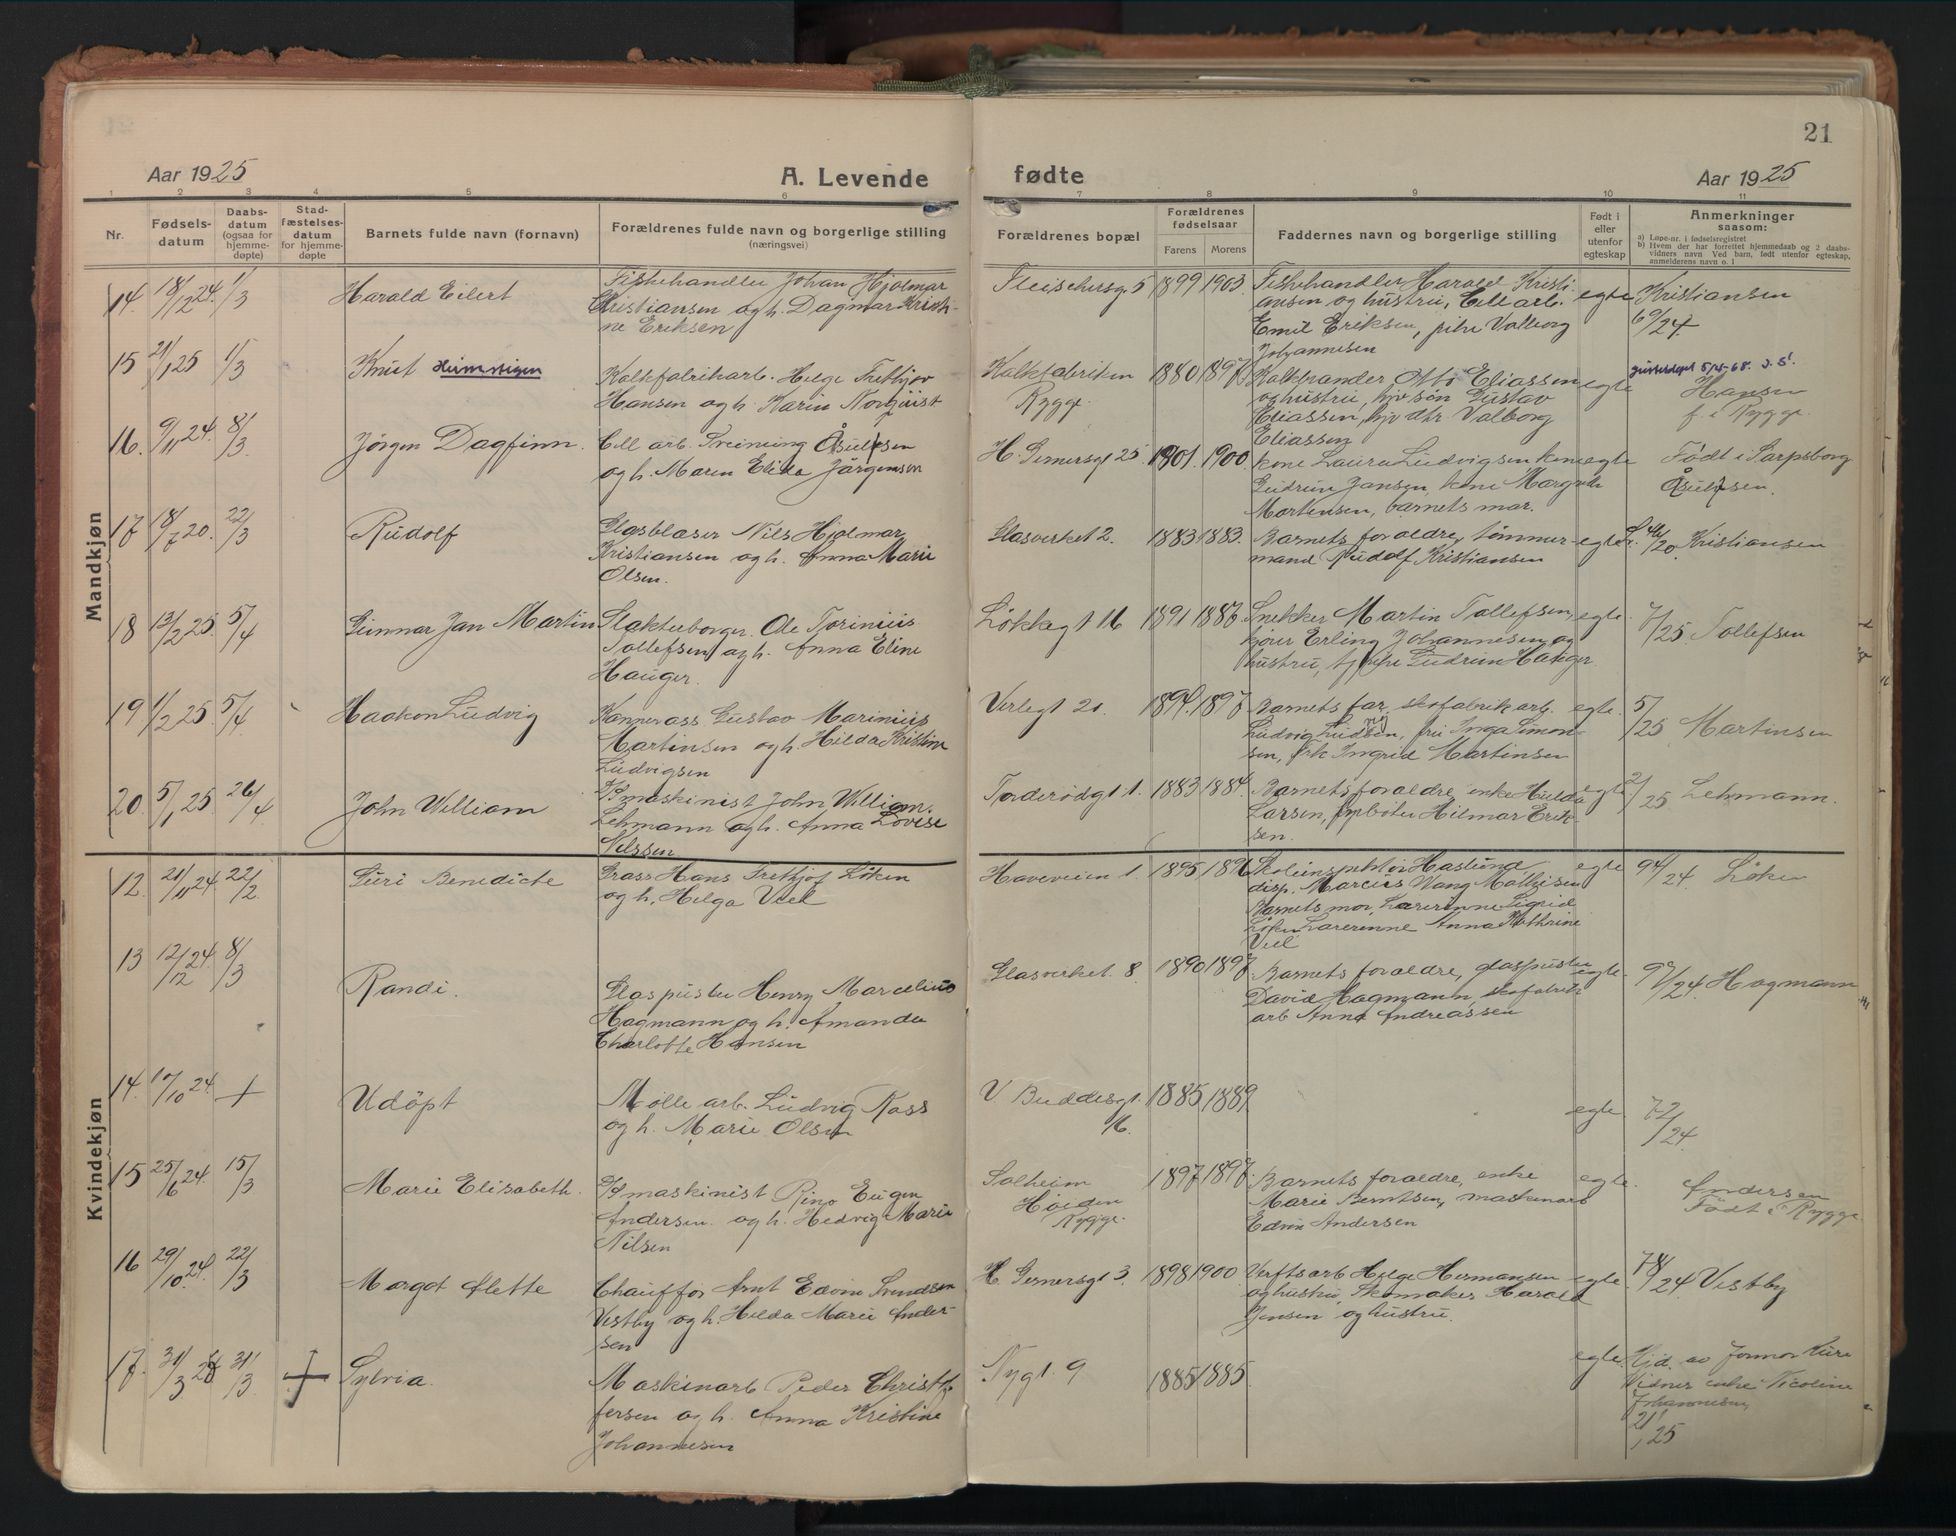 21
Aar 1925
A. Levende
fødte
Aar 1925
1 2 3 4 5 6 7 8 9 10 11
Nr.
Fødsels-
datum
Daabs-
datum
(ogsaa for
hjemme-
døpte)
Stad-
fæstelses-
datum
for hjemme-
døpte
Barnets fulde navn (fornavn)
Forældrenes fulde navn og borgerlige stilling
(næringsvei)
Forældrenes bopæl
Forældrenes
fødselsaar
Farens Morens
Faddernes navn og borgerlige stilling
Født i
eller
utenfor
egteskap
Anmerkninger
saasom:
a) Løpe-nr. i fødselsregistret
b) Hvem der har forrettet hjemmedaab og 2 daabs-
vidners navn Ved barn, født utenfor egteskap,
anmelderens navn o. l
Mandkjøn
14. 18/12 24. 1/3 Harald Eilert
Fiskehandler Johan Hjalmar
Kristiansen og h. Dagmar Kristi-
ne Eriksen
Fleischersg. 5 1899 1903
Fiskehandler Harald Kristi-
ansen og hustru, Cell arb.
Emil Eriksen, pike Valborg
Johannesen
egte
Kristiansen
69/24
15 21/1 25 1/3 Knut Heimstigen
Kalkfabrikarb. Helge Frithjov
Hansen og h. Karin Norquist
Kalkfabriken
Rygge.
1880 1897
Kalkbrander Otto Eliassen
og hustru, hjv søn Gustav
Eliassen, hjv dtr. Valborg
Eliassen
egte
Hansen
f. i Rygge.
16. 9/11 24. 8/3 Jörgen Dagfinn.
Cell arb. Treining Åsulfsen
og h. Maren Elida Jörgensen
H. Gernersgt 25. 1901. 1900.
kone Laura Ludvigsen kone
Gudrun Jansen, kone Margrete
Martensen, barnets mor.
egte
Født i Sarpsborg
Åsulfsen.
17 18/7 20. 22/3 Rudolf
Glasblaser Nils Hjalmar
Kristiansen og h. Anna Marie
Olsen.
Glasverket 2. 1883 1883.
Barnets foraldre, tømmer-
mand Rudolf Kristiansen
egte
Kristiansen
18 13/2 25. 5/4 Gunnar Jan Martin
Slakterborger. Ole Torinius
Tollefsen og h. Anna Eline
Hauger.
Løkkegt 16 1891 1886
Snekker Martin Tollefsen,
kjører Erling Johannesen og
hustru, tj pike Gudrun Hauger.
egte.
7/25 Tollefsen
19 1/2 25. 5/4 Haakon Ludvig
Kontorass Gustav Marinius
Martinsen og h. Hilda Kristine
Ludvigsen
Verlegt 21. 1894. 1897.
Barnets far, skofabrikarb.
Ludvig Ludvigsen, fru Inga Simon-
sen, frk Ingrid Martinsen
egte.
5/25 Martinsen
20. 5/1 25. 26/4 John William
Maskinist John William
Lehmann og h. Anna Lovise
Nilssen
Torderødgt 1. 1883 1884.
Barnets foraldre, enke Hulda
Larsen, Hilmar Erik-
sen.
egte
2/25 Lehmann.
Kvindekjøn
12. 21/11 24 22/2 Guri Benedicte
Gross Hans Frithjof Löken
og h. Helga Viel
Haveveien 1. 1895 1896
Skoleinspektør Haslund
disp. Marcus Wang Mathisen
Barnets mor, Lærerinne Sigrid
Löken Lærerinne Anna Kathrine
Viel
egte
94/24. Löken
13 12/12 24. 8/3 Randi.
Glaspuster Henry Marcelius
Hagmann og h. Amanda
Charlotte Hansen
Glasverket. 8 1890 1897.
Barnets foraldre, glaspuster
David Hagmann, skofabrik
arb Anna Andreassen
egte.
97/24 Hagmann
14. 17/10 24. + Udöpt
Mølle arb. Ludvig Kass
og h. Marie Olsen
V Buddesgt.
16.
1885 1889.
egte.
72/24
15 25/6 24. 15/3 Marie Elisabeth.
Maskinist Rino Eugen
Andersen. og h. Hedvig Marie
Nilsen
Solheim
Høiden
Rygge.
1897 1897.
Barnets foraldre, enke
Marie Berntsen, maskinarb
Edvin Andersen
egte.
Andersen
Født i Rygge.
16 29/10 24. 22/3 Margot Mette
Chauffør Arnt Edvin Svendsen
Vestby og h. Hilda Marie Ander-
sen
H. Gernersgt 3. 1898 1900
Verftsarb Helge Hermansen
og hustru, Skomaker Harald
Jensen og hustru.
egte
78/24 Vestby
17. 31/3 31/3 + Sylvia.
Maskinarb Peder Christof-
fersen og h. Anna Kristine
Johannesen
Nygt. 9 1885 1885.
egte.
Hjd. av Jormor
Vidner enke Nicoline
Johannesen,
21/25